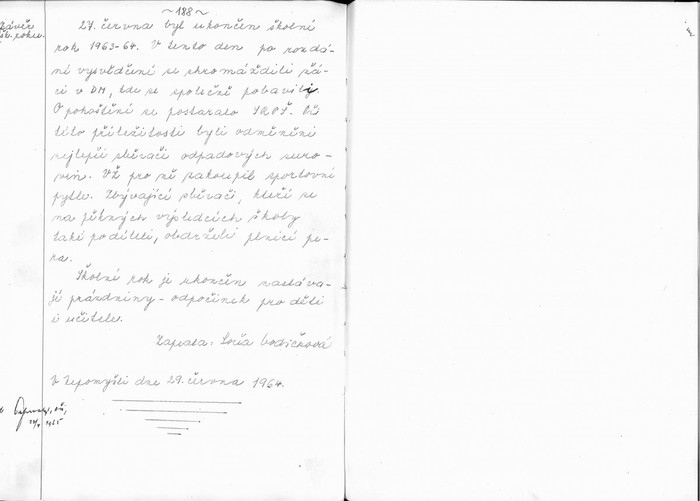 ~ 188 ~
Závěr
šk. roku.
27. června byl ukončen školní
rok 1963-64. V tento den po rozdá-
ní vysvědčení se shromáždili žá-
ci v DM, kde se společně pobavili.
O pohoštění se postaralo SRPŠ. Při
této příležitosti byli odměněni
nejlepší sběrači odpadových suro-
vin. VŽ pro ně zakoupil sportovní
pytle. Zbývající sběrači, kteří se
na pěkných výsledcích školy
také podíleli, obdrželi plnící pe-
ra.
Školní rok je ukončen nastáva-
jí prázdniny - odpočinek pro děti
i učitele.
Zapsala: Soňa Vodičková
V Nepomyšli dne 29. června 1964.
1965